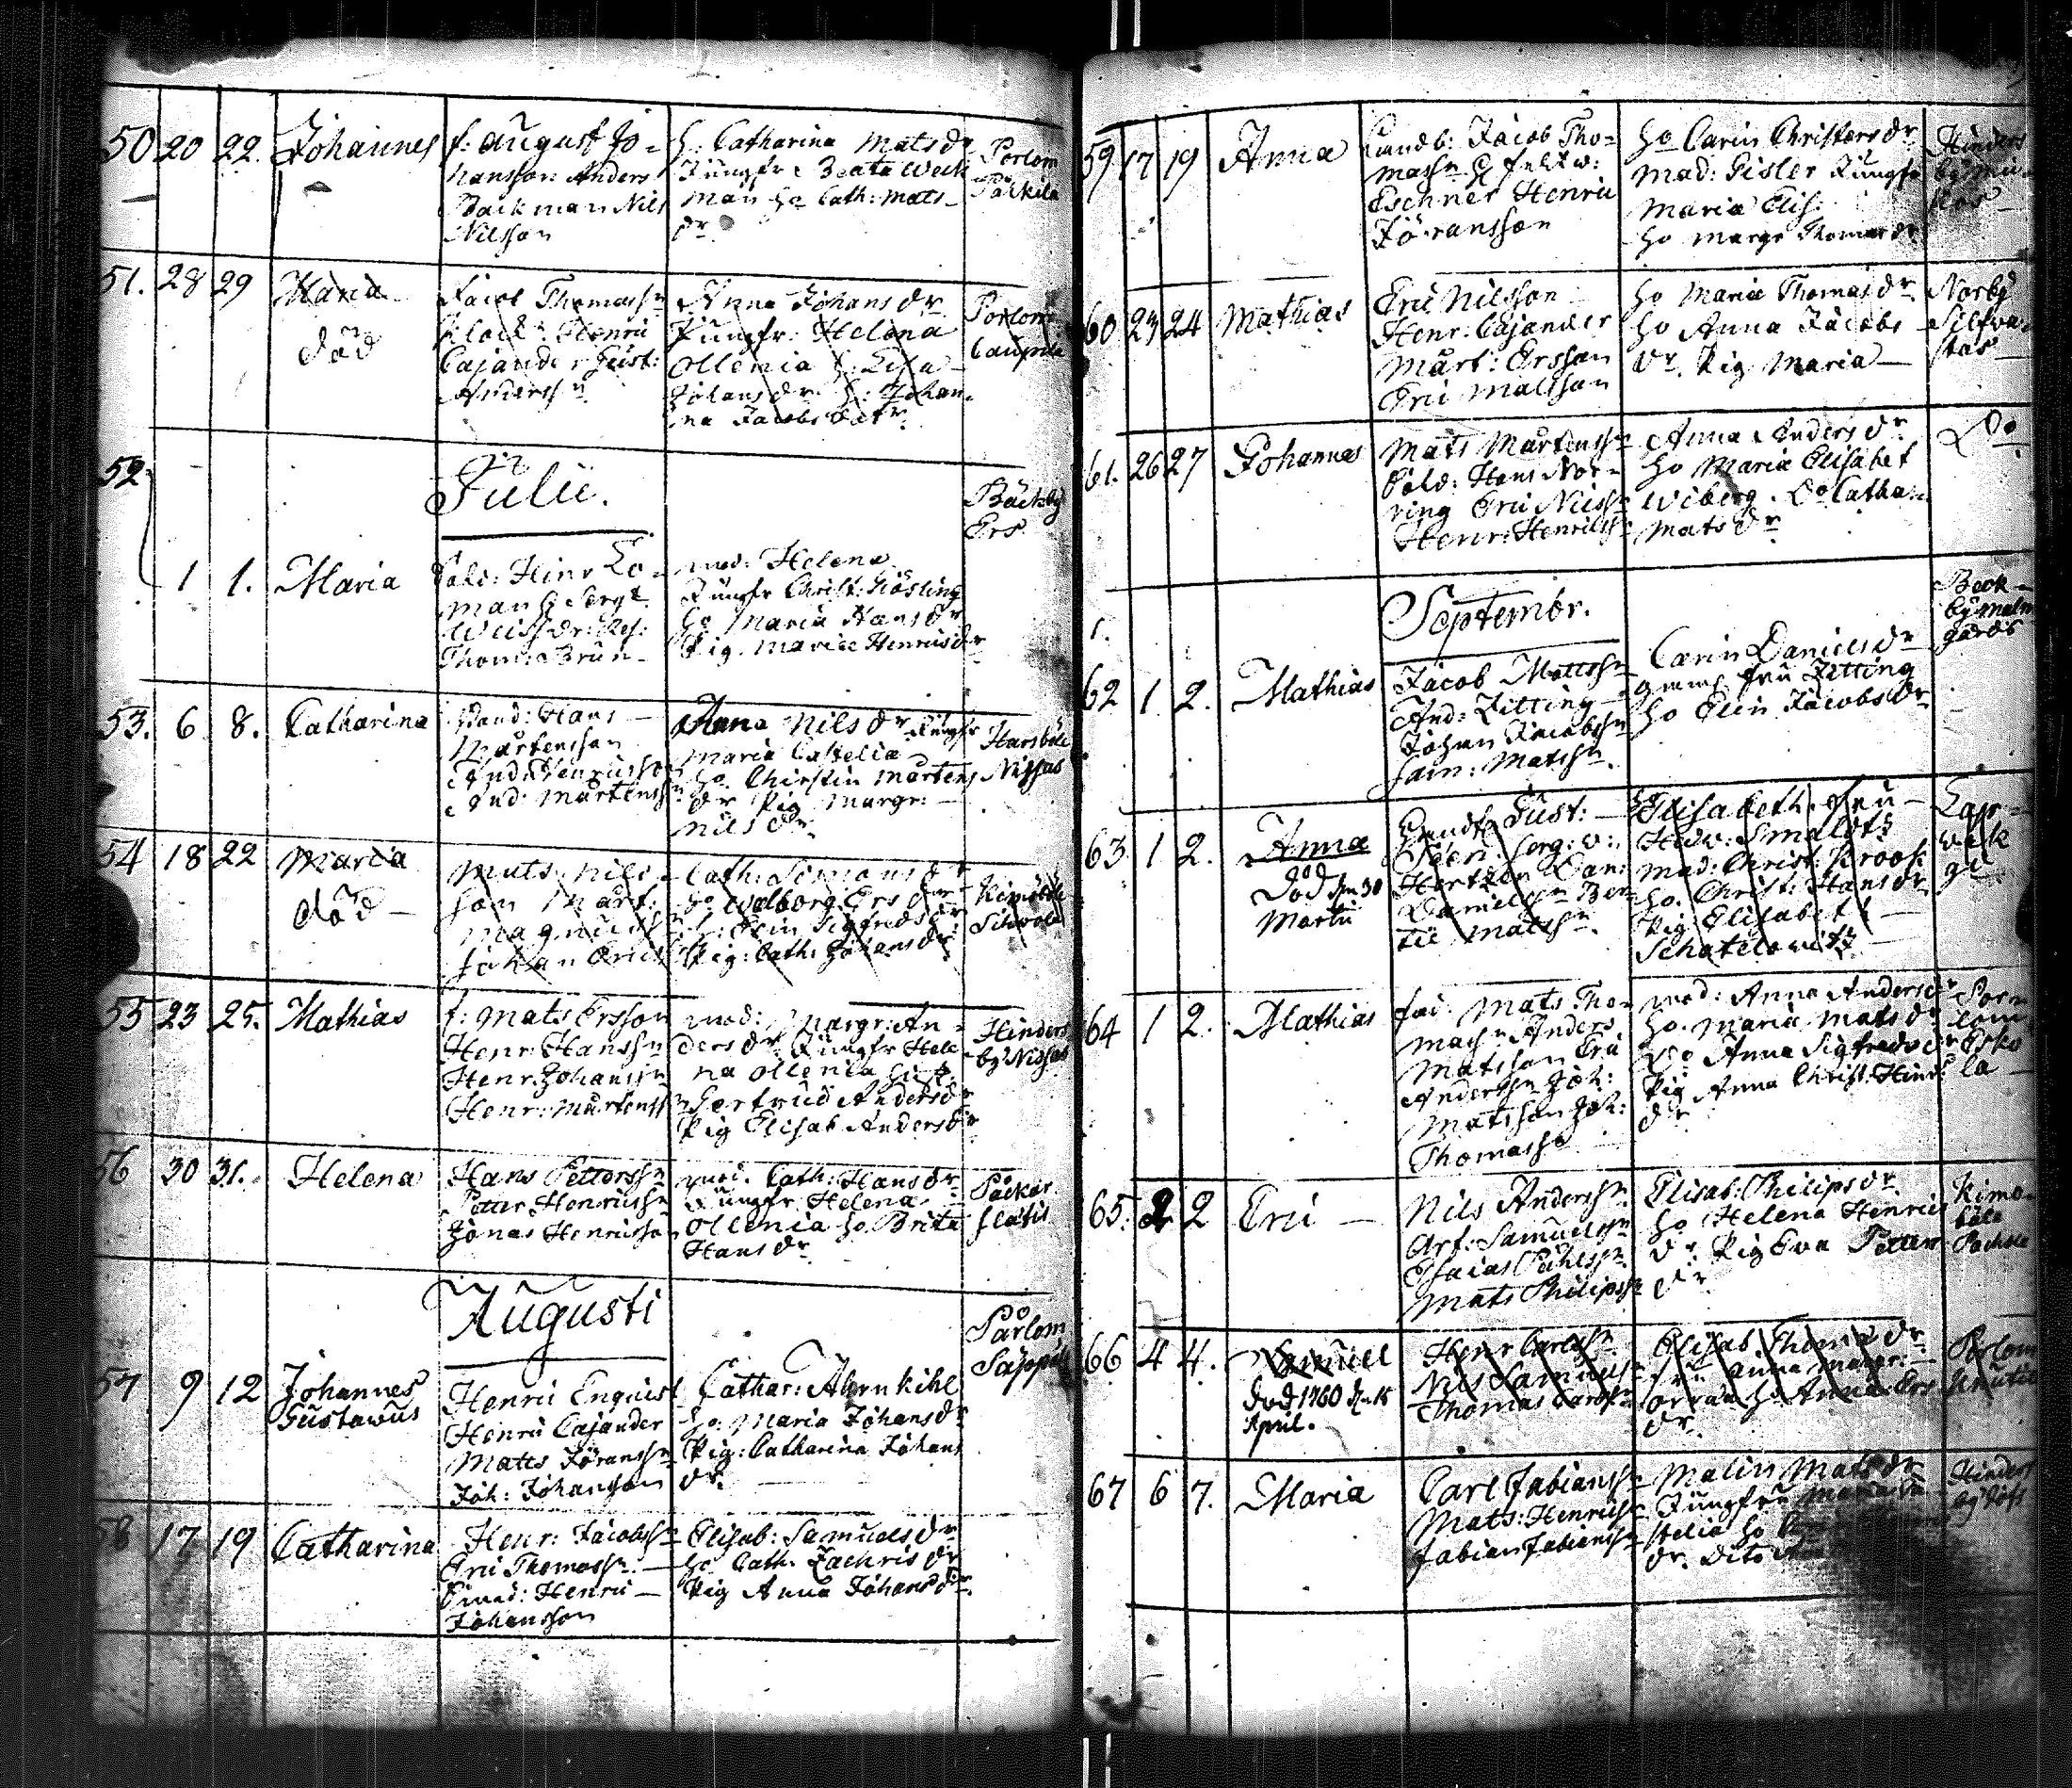 50 20 22. Johannes
f: August Jo-
hansson Anders
Backman Nils
Nilsson
h: Catharina Matsdr
Jungfr: Beata Weck
man ho Cath: Mats
dr
Porlom
Päckilä
51. 28 29 Maria
död
Jacob Thomass:n
Klock: Henric
Cajander Gust:
Anderss:n
Anna Johansdr
Jungfr: Helena
Ollenia h: Lisa
Johansdr h: Johan
na Jacobs dotr.
Porlom
52.
Julii.
Bäckby
Ers
1 1. Maria
Sold: Hinr Lo-
man
Thom: Brun
mod: Helena
Jungfr Christ: Kösling
ho Maria Hansdr
Pig. Maria Henricsdr
53. 6 8. Catharina
Hans
Mårtensson
And: Henricsson
And: Mårtenss:n
Anna Nilsdr Jungfr
Maria Castelia
ho Christin Mårtens
dr Pig Margr:
Nilsdr
Harsböle
Nissas
54 18 22 Maria
död
Mats Nils-
son Mårt:
Magnuss:n
Johan Erics
Cath: Simonsdr
ho Walborg Ersdr
h: Elin Sigfredsdr
Pig: Cath: Johansdr
Kimoböle
55 23 25. Mathias
f: Mats Ersson
Henr: Hanss:n
Henr. Johanss:n
Henr: Mårtenss:n
mod: Margr: An-
dersdr Jungfr Hele
na Ollenia
Gertrud Andersdr
Pig Elisab Andersdr
Hinders
by Nissas
56 30 31. Helena
Hans Petterss:n
Petter Henricss:n
Jonas Henricsson
mod. Cath: Hansdr
Jungfr Helena
Ollenia ho. Brita
Hansdr
Säckar
Augusti
Pårlom
Säppälä
57 9 12 Johannes
Gustawus
Henric Enquist
Henric Cajander
Matts Jöranss:n
Joh: Johansson
Cathar: Ahrnkihl
ho: Maria Johansdr
Pig: Catharina Johans
dr.
58 17 19 Catharina
Henr: Jacobss:n
Eric Thomass:n
Henric
Johansson
Elisab: Samuelsdr
ho Cath. Zachrisdr
Pig Anna Johansdr.
59 17 19 Anna
Landb: Jacob Tho-
mass:n
Eschner Henric
Jöransson
ho Carin Christersdr
mad: Gisler Jungfr
Maria Elis:
ho Margr Thomasdr
Hinders
by
60 23 24 Mathias
Eric Nilsson
Henr: Cajander
Mårt: Ersson
Eric Matsson
ho Maria Thomasdr.
ho Anna Jacobs
dr. Pig Maria
Norby
Silfva-
stas
61. 26 27 Johannes
Mats Mårtenss:n
Sold: Hans Nor-
ring Eric Nilss:n
Henr: Henrikss:n
Anna Andersdr
ho Maria Elisabet
Wiberg. Do Catha:
Matsdr
Do
Septembr.
Beck
by Malm
gårds
62 1 2. Mathias
Jacob Mattss:n
And: Zitting
Johan Jacobss:n
Sam: Matss:n.
Carin Danielsdr
fru Zitting
ho Elin Jacobsdr
63 1 2. Anna
död dn 30
Martii
Gust:
Hertzen Dan:
Danielss:n Ben
til Matss:n.
Elisabeth fru
Hedv: Smaldts
mad: Christ: Krook
ho. Christ: Hansdr
Pig Elisabet
64 1 2. Mathias
fad: Mats Tho-
mass:n Anders
Matsson Eric
Anderss:n Joh:
Matsson Joh:
Thomass:n
mod: Anna Andersdr
ho. Maria Matsdr
Do Anna Sigfredsdr
Pig Anna Christ: Hinrs
dr
Por-
lom
Esko
la
65. 2 2 Eric
Nils Anderss:n
Art: Samuelss:n
Esaias Påhlss:n
Mats Philipss:n
Elisab: Philipsdr.
ho Helena Henrics
dr. Pig Eva Petters
dr
Kimo
böle
66 4 4. Samuel
död 1760 dn 15
April.
Henr Carlss:n
Nils Samuelss:n
Thomas Carlss:n
Elisab. Thomasdr
fru Anna Margr:
ho Anna Ers
dr.
Porlom
67 6 7. Maria
Carl Fabianss:n
Mats: Henricss:n
Fabian Fabianss:n
Malin Matsdr
Jungfru Maria Ca
stelia ho
dr. Dito
Hinders
by